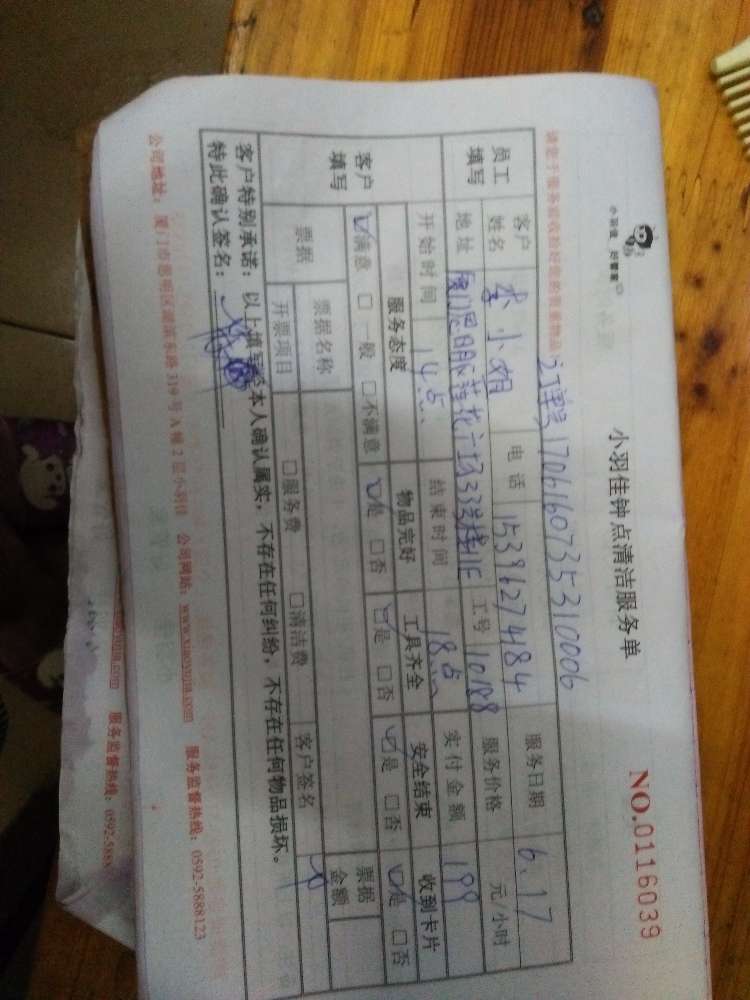 小羽佳 好管家
小羽佳钟点清洁服务单
NO.0116039
请您于服务前收拾好您的贵重物品
订单号170616073535310006
员工填写
客户姓名 李小姐 电话 15396274184 服务日期 6.17
地址 厦门思明区莲花广场 工号 10188 服务价格 元/小时
开始时间 14点 结束时间 18点 实付金额 199
客户填写
服务态度 物品完好 工具齐全 安全结束 收到卡片
☑满意 □一般 □不满意 ☑是 □否 ☑是 □否 ☑是 □否 ☑是 □否
票据 票据名称 客户签名 票据金额
开票项目 □服务费 □清洁费
客户特别承诺：以上填写经本人确认属实，不存在任何纠纷，不存在任何物品损坏。
特此确认签名：
公司地址：厦门市思明区湖滨东路319号A幢2层小羽佳 公司网站：www.xiaoyujia.com 服务监督热线：0592-5888123
服务监督热线：0592-5888